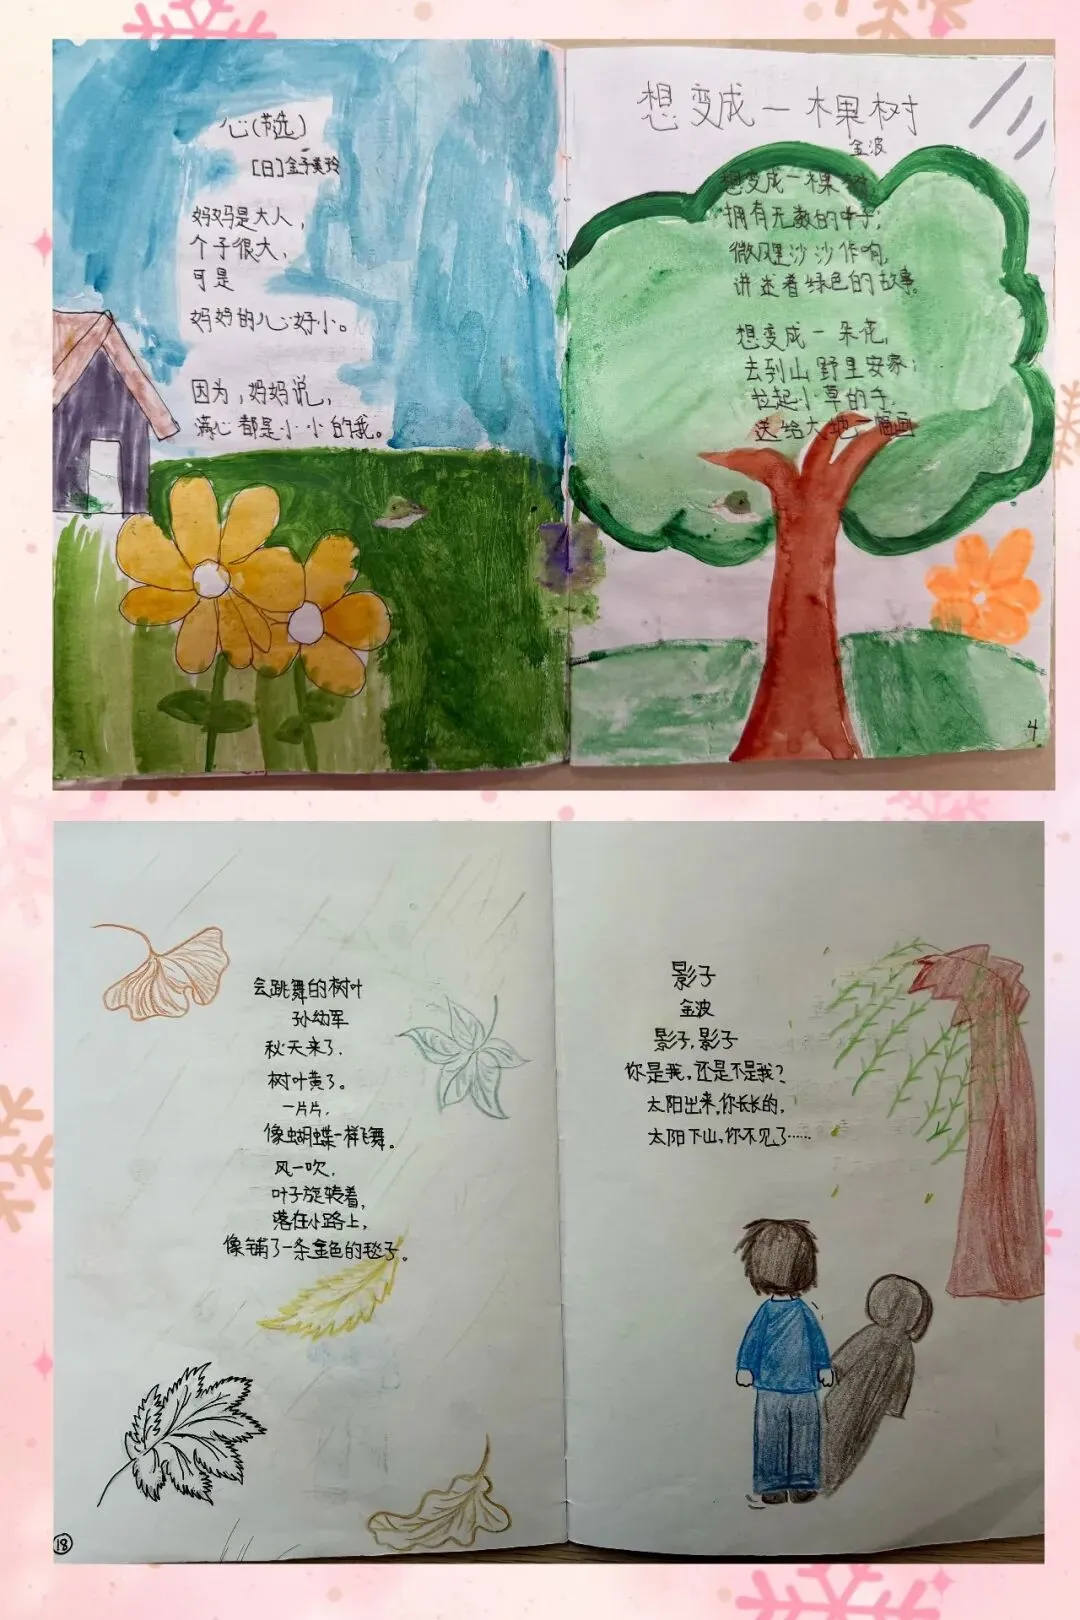 心(节选)
[日]金子美玲
妈妈是大人，
个子很大，
可是
妈妈的心好小。
因为，妈妈说，
满心都是小小的我。
3
想变成一棵树
金波
想变成一棵树，
拥有无数的叶子；
微风里沙沙作响，
讲述着绿色的故事。
想变成一朵花，
去到山野里安家；
拉起小草的手，
送给大地一幅画
4
会跳舞的树叶
孙幼军
秋天来了，
树叶黄了。
一片片，
像蝴蝶一样飞舞。
风一吹，
叶子旋转着，
落在小路上，
像铺了一条金色的毯子。
18
影子
金波
影子，影子
你是我，还是不是我？
太阳出来，你长长的，
太阳下山，你不见了……